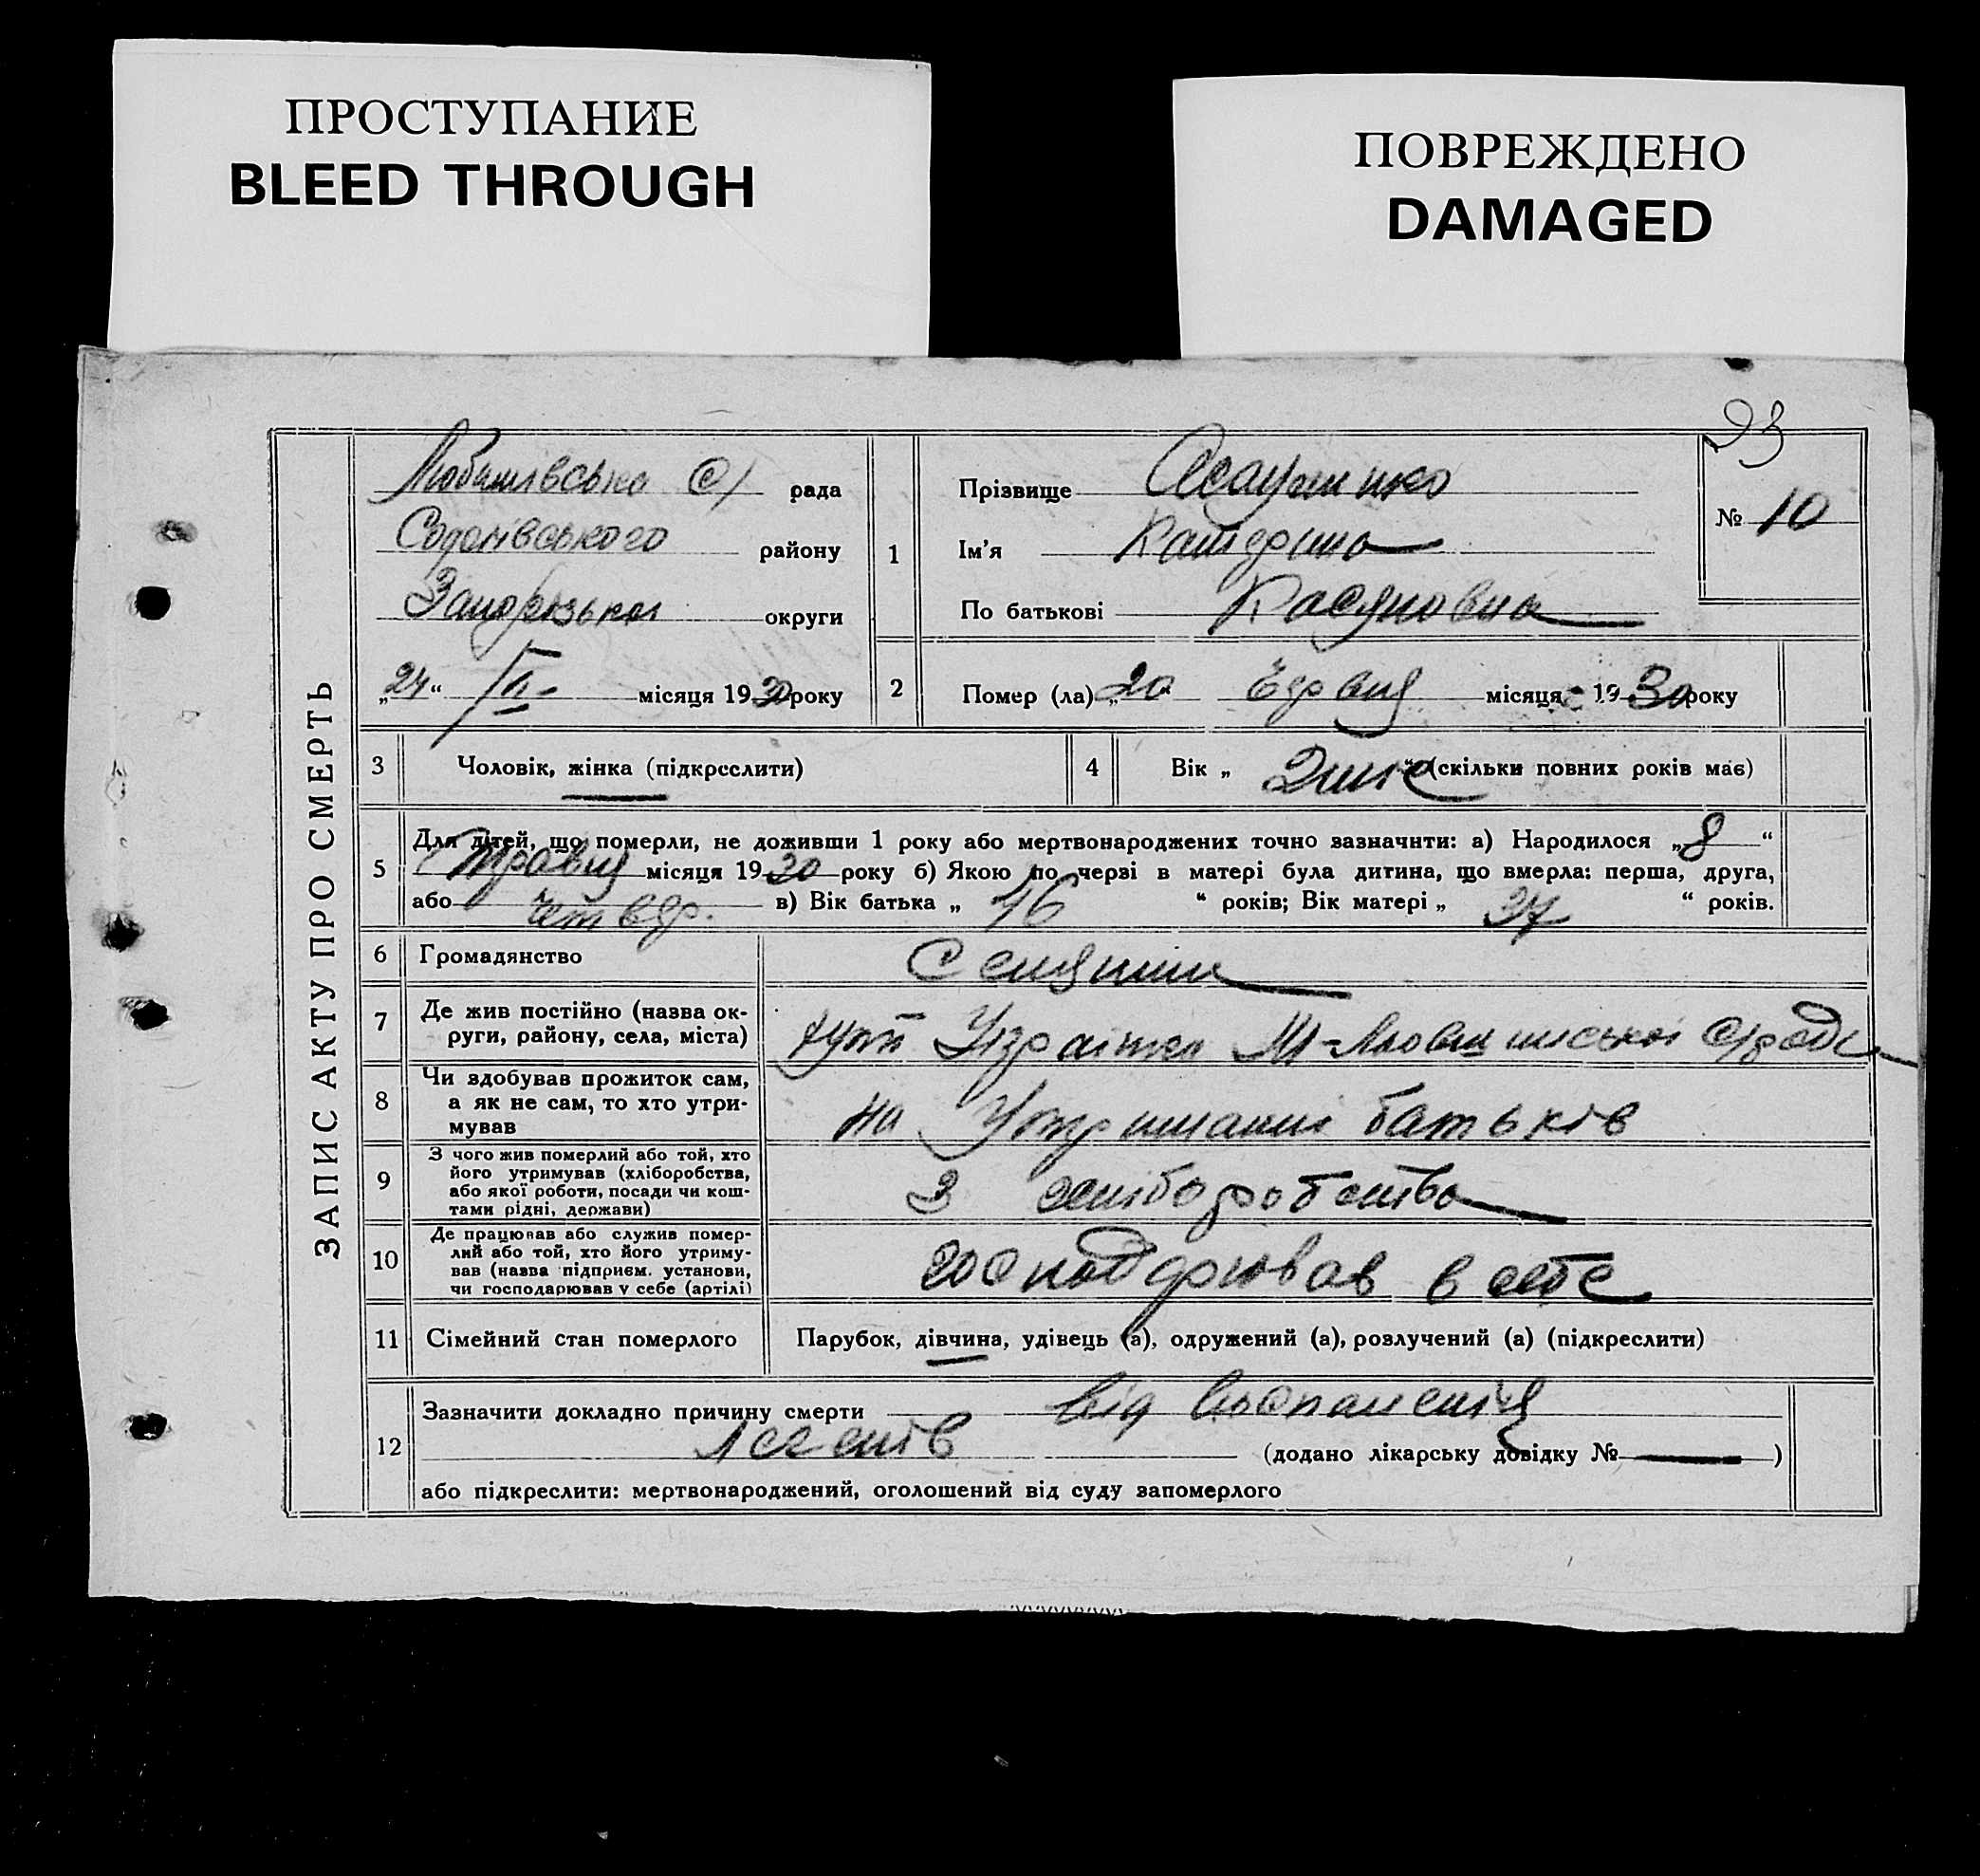 ПРОСТУПАНИЕ
BLEED THROUGH
ПОВРЕЖДЕНО
DAMAGED
93
ЗАПИС АКТУ ПРО СМЕРТЬ
рада
району
Запорізької округи
„24“ місяця 1930 року
1
Прізвище
Ім'я Катерина
По батькові Касяновна
№ 10
2
Помер (ла) „20 місяця 1930 року
3 Чоловік, жінка (підкреслити)
4 Вік „ “ (скільки повних років має)
5
Для дітей, що померли, не доживши 1 року або мертвонароджених точно зазначити: а) Народилося „8“
Травня місяця 1930 року б) Якою по черзі в матері була дитина, що вмерла: перша, друга,
або четвер. в) Вік батька „46“ років; Вік матері „37“ років.
6 Громадянство Селянин
7 Де жив постійно (назва ок-
руги, району, села, міста)
8 Чи здобував прожиток сам,
а як не сам, то хто утри-
мував
на утриманні батьків
9 З чого жив померлий або той, хто
його утримував (хліборобства,
або якої роботи, посади чи кош-
тами рідні, держави)
З хліборобства
10 Де працював або служив помер-
лий або той, хто його утриму-
вав (назва підприєм. установи,
чи господарював у себе (артілі)
в себе
11 Сімейний стан померлого Парубок, дівчина, удівець (а), одружений (а), розлучений (а) (підкреслити)
12 Зазначити докладно причину смерти від
(додано лікарську довідку № — )
або підкреслити: мертвонароджений, оголошений від суду запомерлого